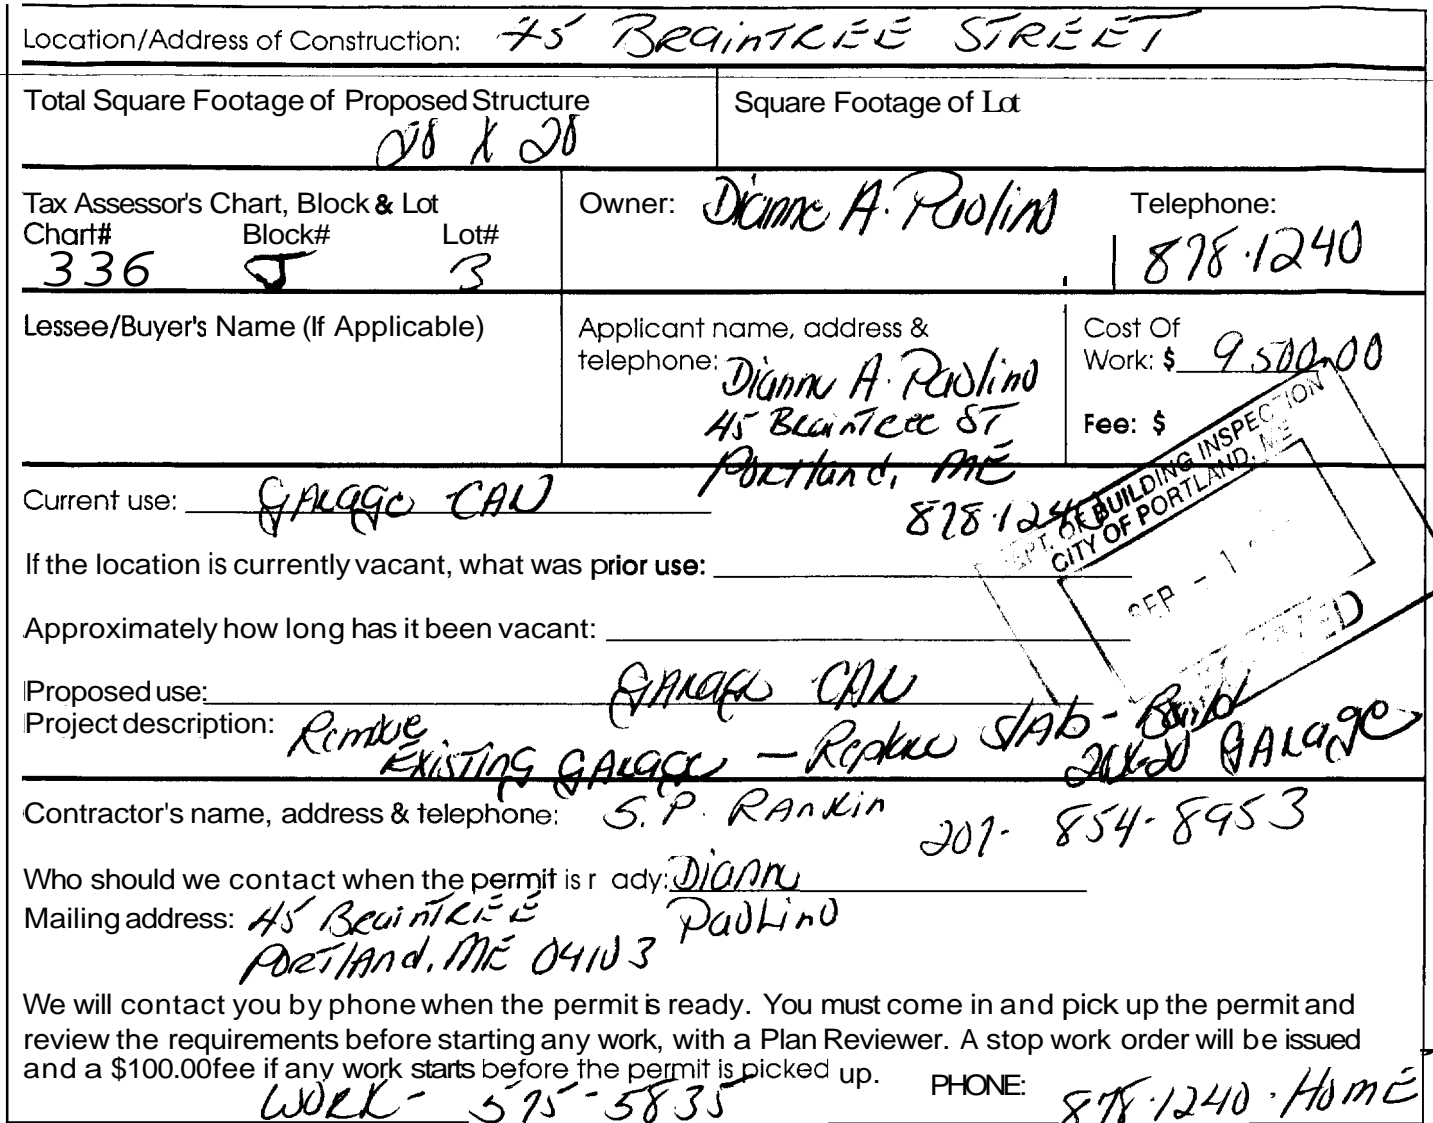 Location/Address of Construction: 45 BRAINTREE STREET
Total Square Footage of Proposed Structure
28 X 28
Square Footage of Lot
Tax Assessor's Chart, Block & Lot
Chart# Block# Lot#
336 J 3
Owner: Dianne A. Paolino
Telephone:
878.1240
Lessee/Buyer's Name (If Applicable)
Applicant name, address &
telephone: Dianne A. Paolino
45 Braintree ST
Portland, ME
878.1240
Cost Of
Work: $ 9500.00
Fee: $
DEPT. OF BUILDING INSPECTION
CITY OF PORTLAND, ME
SEP - 1
RECEIVED
Current use: GARAGE CAR
If the location is currently vacant, what was prior use:
Approximately how long has it been vacant:
Proposed use: GARAGE CAR
Project description: Remove
EXISTING GARAGE - Replace SLAB - Build
GARAGE
Contractor's name, address & telephone: S.P. RANKIN
207- 854-8953
Who should we contact when the permit is r ady: Dianne
Paolino
Mailing address: 45 BRAINTREE
PORTLAND, ME 04103
We will contact you by phone when the permit is ready. You must come in and pick up the permit and
review the requirements before starting any work, with a Plan Reviewer. A stop work order will be issued
and a $100.00fee if any work starts before the permit is picked up.
PHONE:
WORK- 575-5835
878.1240.HOME